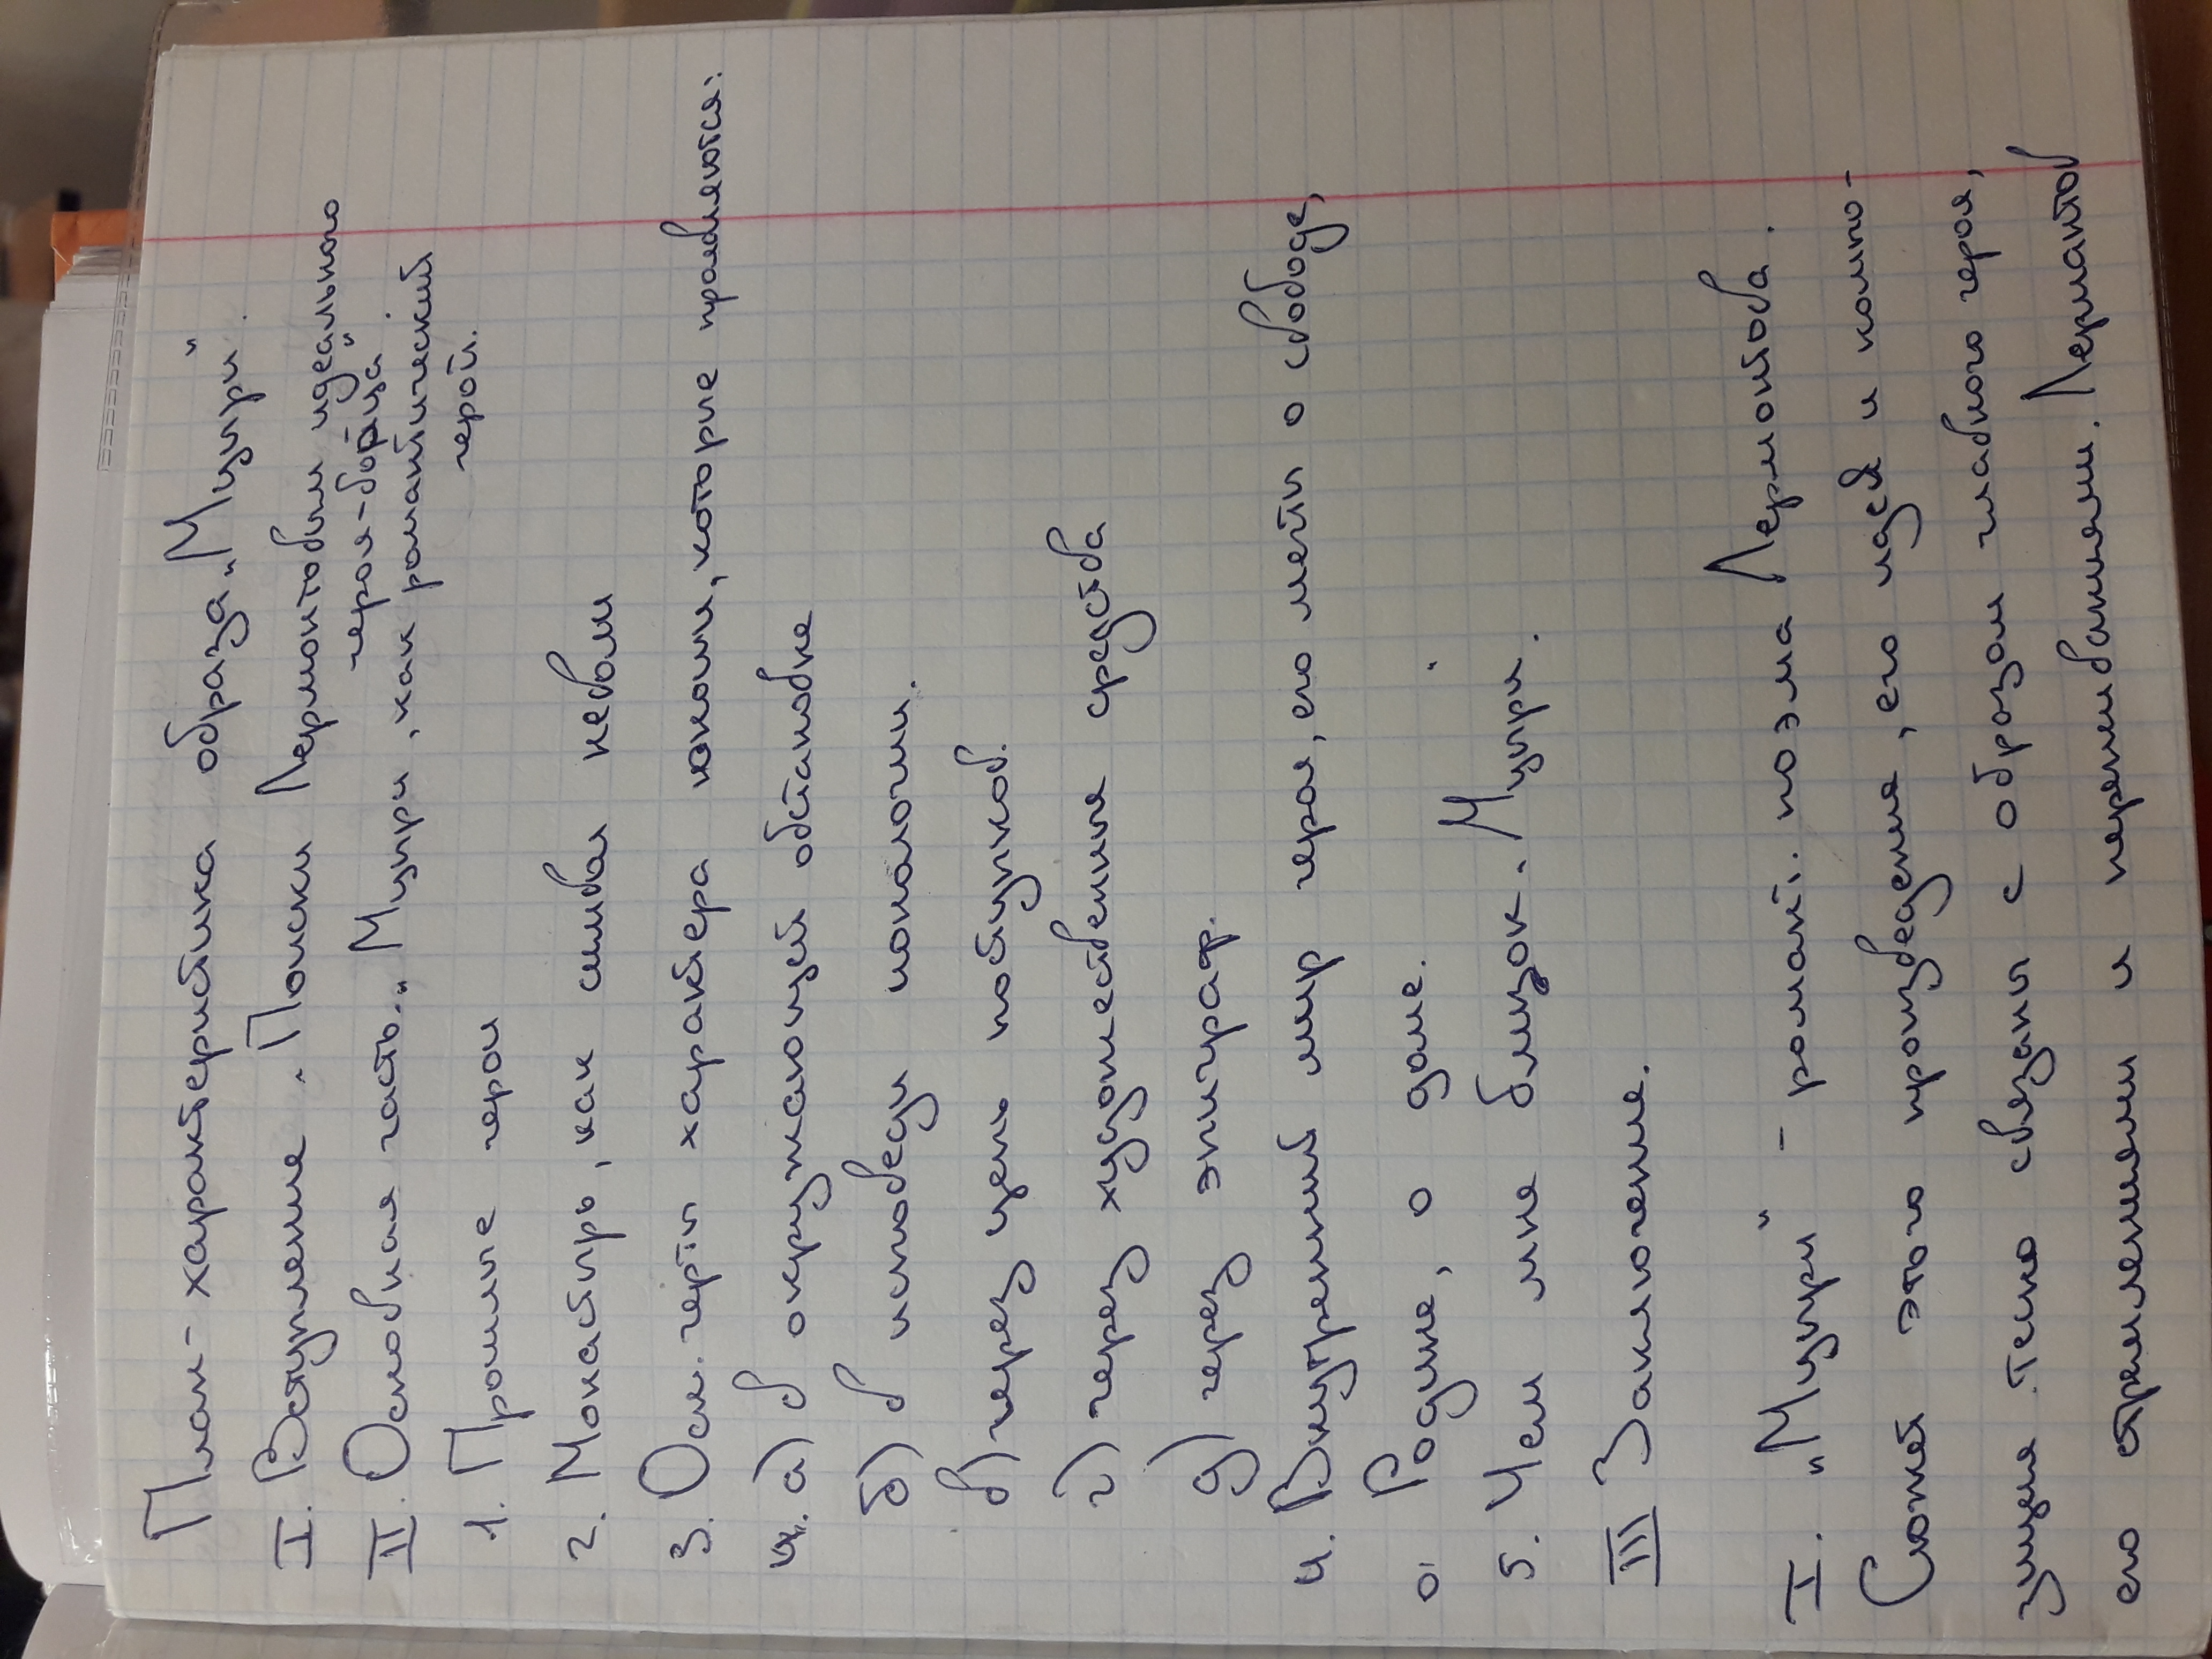 План-характеристика образа „Мцыри".
I. Вступление „Поиски Лермонтовым идеального
героя-борца".
II. Основная часть. „Мцыри, как романтический
герой.
1. Прошлые герои
2. Монастырь, как символ неволи
3. Осн. черты характера юноши, которые проявляются:
4. а) в окружающей обстановке
б) в исповеди монологии.
в) через цепь поступков.
г) через художественные средства
д) через эпиграф.
4. Внутренний мир героя, его мечты о свободе,
о Родине, о доме.
5. Чем мне близок „Мцыри".
III Заключение.
I. „Мцыри" - романт. поэма Лермонтова.
Сюжет этого произведения, его идея и компо-
зиция тесно связаны с образом главного героя,
его стремлениями и переживаниями. Лермантов